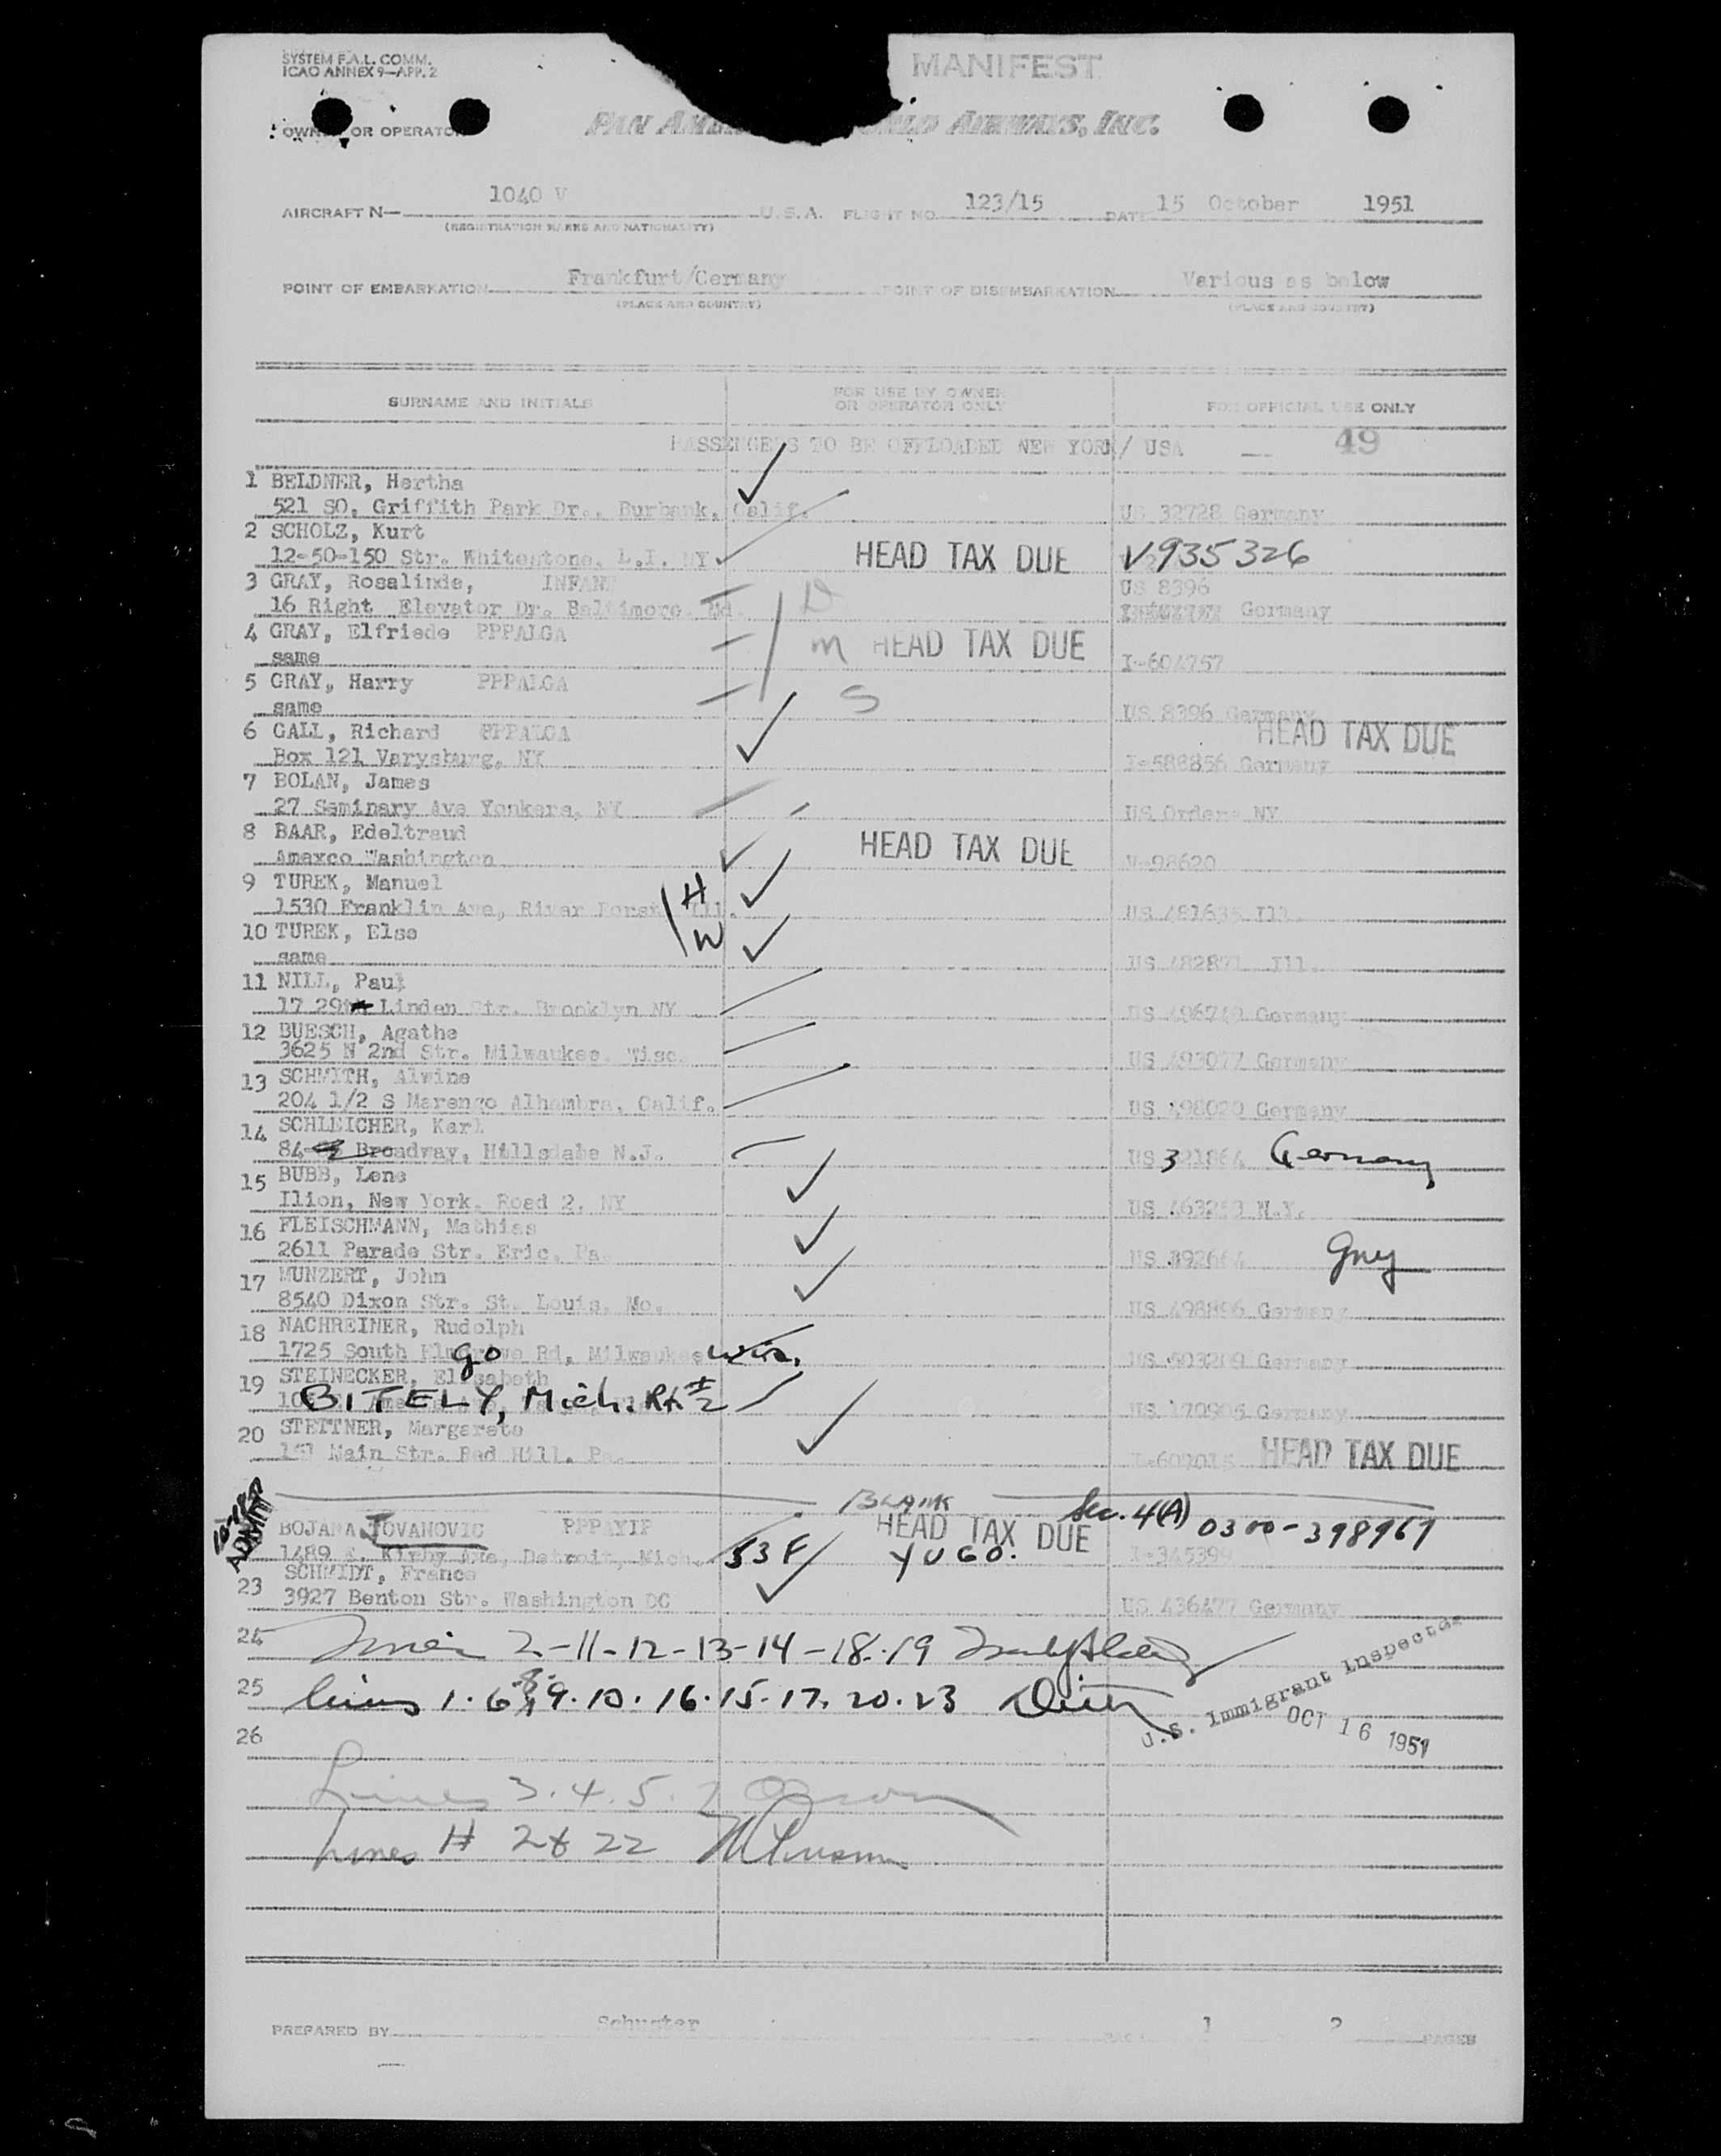 SYSTEM F.A.L. COMM.
ICAO ANNEX 9—APP. 2
MANIFEST
OWNER OR OPERATOR
PAN AMER WORLD AIRWAYS, INC.
AIRCRAFT N— 1040 V U.S.A. FLIGHT NO. 123/15 DATE 15 October 1951
(REGISTRATION MARKS AND NATIONALITY)
POINT OF EMBARKATION Frankfurt/Germany POINT OF DISEMBARKATION Various as below
(PLACE AND COUNTRY) (PLACE AND COUNTRY)
SURNAME AND INITIALS FOR USE BY OWNER OR OPERATOR ONLY FOR OFFICIAL USE ONLY
PASSENGERS TO BE OFFLOADED NEW YORK/ USA — 49
1 BELDNER, Hertha
521 SO. Griffith Park Dr., Burbank, Calif. US 32728 Germany
2 SCHOLZ, Kurt
12-50-150 Str. Whitestone, L.I. NY HEAD TAX DUE V935326
3 GRAY, Rosalinde, INFANT US 8396
16 Right Elevator Dr. Baltimore. Md. D Germany
4 GRAY, Elfriede PPPALGA
same M HEAD TAX DUE I-604757
5 GRAY, Harry PPPALGA
same S US 8396 Germany
6 GALL, Richard PPPALGA HEAD TAX DUE
Box 121 Varysburg, NY I-588856 Germany
7 BOLAN, James
27 Seminary Ave Yonkers, NY US Orders NY
8 BAAR, Edeltraud
Amexco Washington HEAD TAX DUE V-98620
9 TUREK, Manuel H
1530 Franklin Ave, River Forest Ill. US 481635 Ill.
10 TUREK, Else W
same US Ill.
11 NILL, Paul
17 29 Linden Str. Brooklyn NY US Germany
12 BUESCH, Agathe
3625 N 2nd Str. Milwaukee. Wisc. US 493077 Germany
13 SCHMITH, Alwine
204 1/2 S Marengo Alhambra, Calif. US 498020 Germany
14 SCHLEICHER, Karl
84- Broadway, Hillsdale N.J. US 321864 Germany
15 BUBB, Lene
Ilion, New York. Road 2. NY US N.Y.
16 FLEISCHMANN, Mathias
2611 Parade Str. Eric, Pa. US Gmy
17 MUNZERT, John
8540 Dixon Str. St. Louis, Mo. US 498896 Germany
18 NACHREINER, Rudolph
1725 South Rd, Milwaukee Wis. US Germany
19 STEINECKER, Elisabeth go
BITELY, Mich. Rt # 2 US 170905 Germany
20 STETTNER, Margarete
Main Str. Red Hill. Pa. HEAD TAX DUE
BLANK
ADMIT BOJANA JOVANOVIC PPPAYIP HEAD TAX DUE Sec. 4(A) 0300-398967
1489 E. Kirby Ave, Detroit, Mich. 53 F YUGO. I-345399
23 SCHMIDT, France
3927 Benton Str. Washington DC US 436477 Germany
24 Lines 2-11-12-13-14-18-19
25 Lines 1. 6 8 9. 10. 16. 15. 17. 20. 23
U.S. Immigrant Inspector
OCT 16 1951
26
Lines 3. 4. 5. 7
Lines # 22
PREPARED BY Schuster PAGE 1 2 PAGES